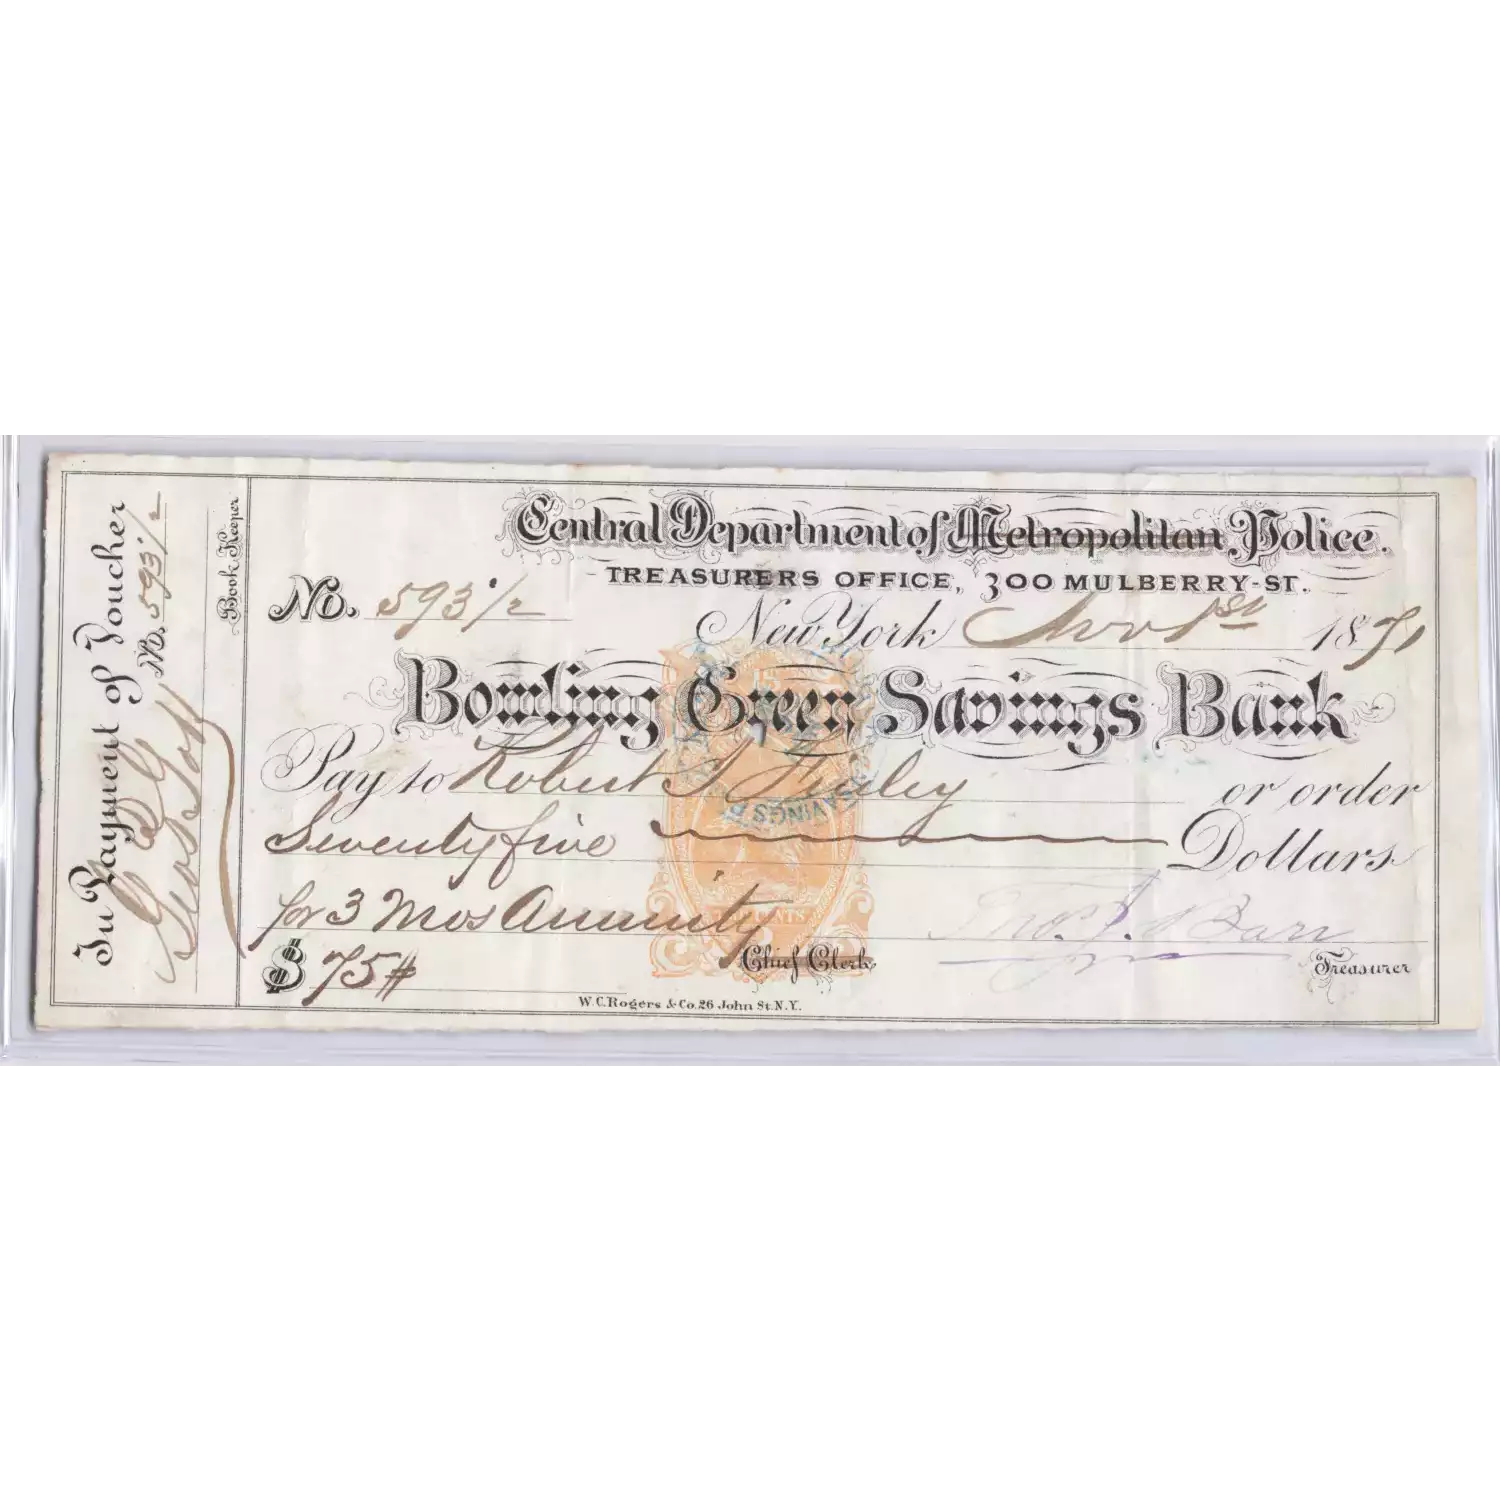 In Payment of Voucher
No. 593 1/2
Book Keeper
Central Department of Metropolitan Police.
TREASURERS OFFICE, 300 MULBERRY-ST.
No. 593 1/2
New York Nov 1st 1871
Bowling Green Savings Bank
Pay to Robert J Finley or order
Seventy five Dollars
for 3 Mos Annuity
Thos. J. Barr
$ 75 #
Chief Clerk
Treasurer
W.C. Rogers & Co. 26 John St. N.Y.
SAVINGS
CENTS